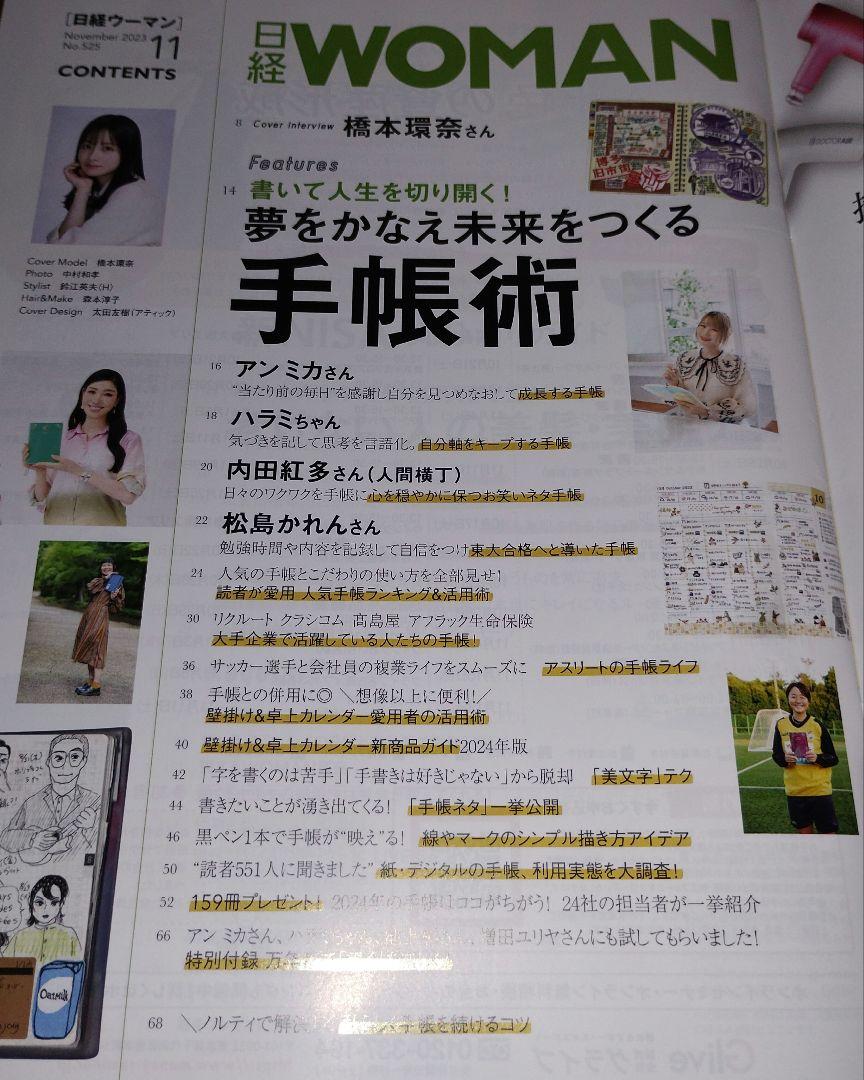 [日経ウーマン]
November 2023
No.525
11
CONTENTS
日経WOMAN
8 Cover Interview 橋本環奈さん
Features
14 書いて人生を切り開く!
夢をかなえ未来をつくる
手帳術
Cover Model 橋本環奈
Photo 中村和孝
Stylist 鈴江英夫(H)
Hair&Make 森本淳子
Cover Design 太田友樹(アティック)
博多
旧市街
16 アン ミカさん
“当たり前の毎日”を感謝し自分を見つめなおして成長する手帳
18 ハラミちゃん
気づきを記して思考を言語化。自分軸をキープする手帳
20 内田紅多さん(人間横丁)
日々のワクワクを手帳に心を穏やかに保つお笑いネタ手帳
22 松島かれんさん
勉強時間や内容を記録して自信をつけ東大合格へと導いた手帳
24 人気の手帳とこだわりの使い方を全部見せ!
読者が愛用 人気手帳ランキング&活用術
30 リクルート クラシコム 髙島屋 アフラック生命保険
大手企業で活躍している人たちの手帳!
36 サッカー選手と会社員の複業ライフをスムーズに アスリートの手帳ライフ
38 手帳との併用に◎ \想像以上に便利!/
壁掛け&卓上カレンダー愛用者の活用術
40 壁掛け&卓上カレンダー新商品ガイド2024年版
42 「字を書くのは苦手」「手書きは好きじゃない」から脱却 「美文字」テク
44 書きたいことが湧き出てくる! 「手帳ネタ」一挙公開
46 黒ペン1本で手帳が“映え”る! 線やマークのシンプル描き方アイデア
50 “読者551人に聞きました” 紙・デジタルの手帳、利用実態を大調査!
52 159冊プレゼント! 2024年の手帳はココがちがう! 24社の担当者が一挙紹介
66 アン ミカさん、ハラ 増田ユリヤさんにも試してもらいました!
特別付録 万年
68 \ノルティで解決 手帳を続けるコツ
Oatmilk